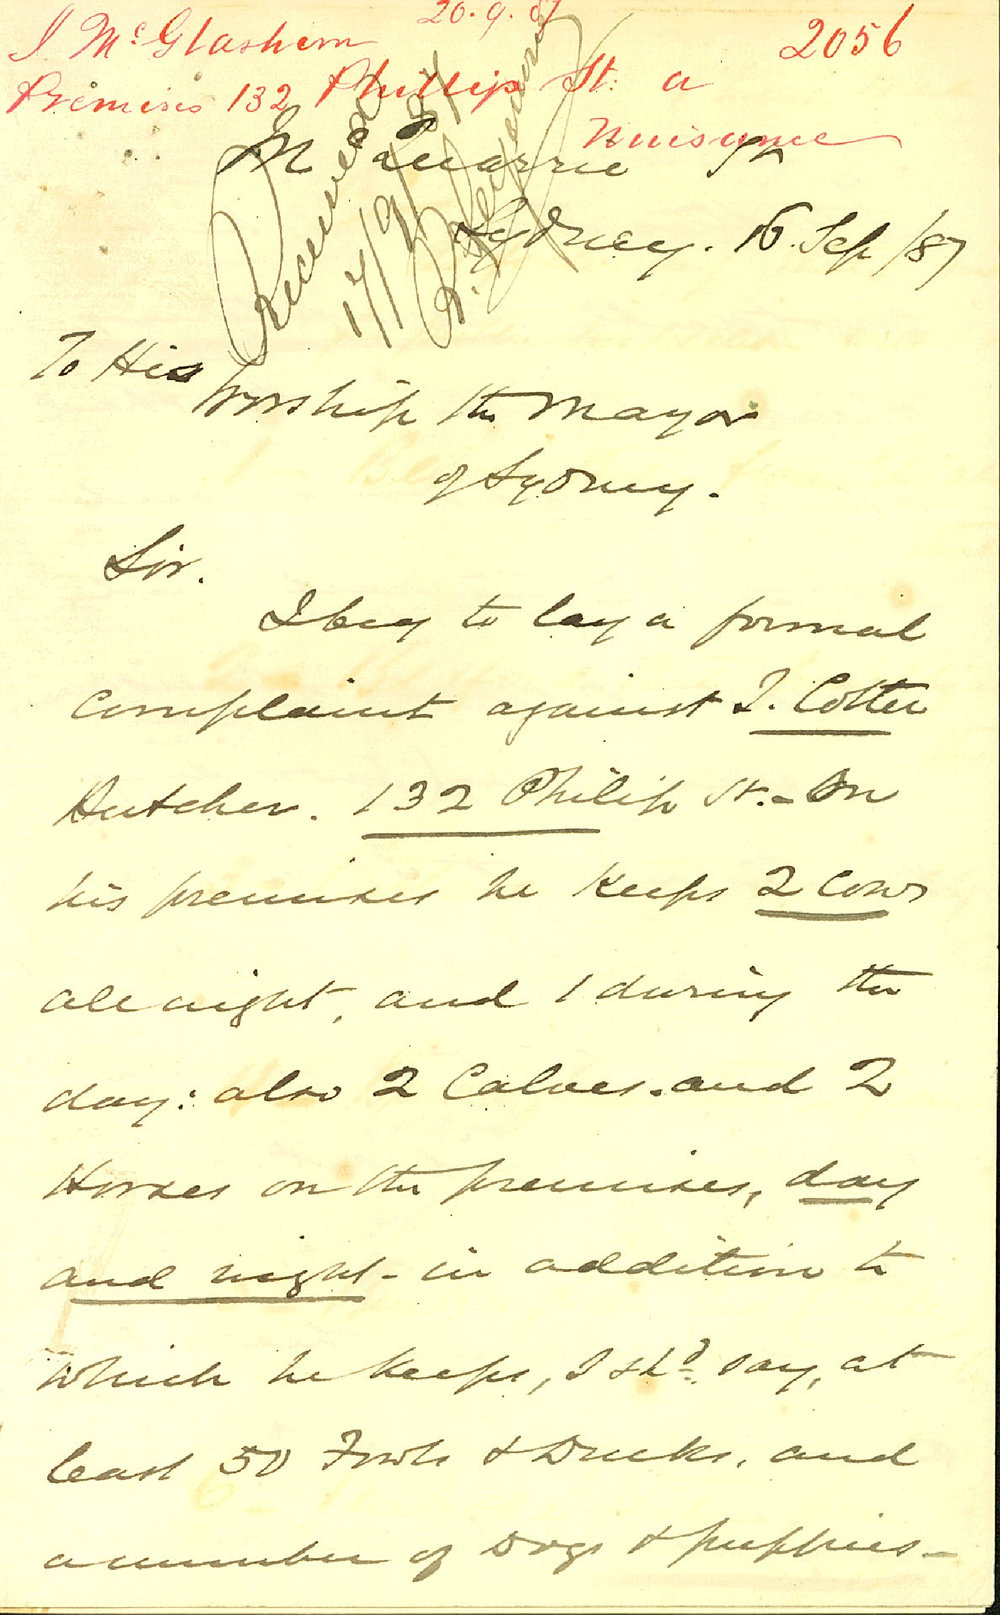 20.9.87
J. McGlashem
2056
Premises 132 Phillip St. a
Nuisance
Received
17/9/87
McQuarrie St
Sydney. 16. Sep /87
To His
Worship the Mayor
of Sydney.
Sir.
I beg to lay a formal
complaint against J. Cotter
Butcher. 132 Philip St. - On
his premises he keeps 2 Cows
all night, and 1 during the
day: also 2 Calves. and 2
Horses on the premises, day
and night - in addition to
which he keeps, I shd. say, at
least 50 Fowls & Ducks, and
a number of Dogs & puppies -